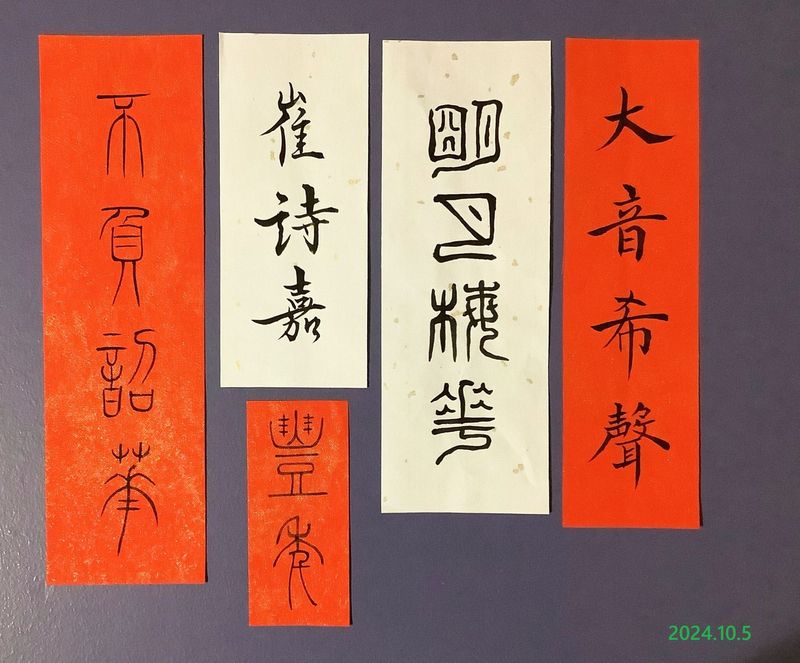 大音希聲
明月梅花
崔詩嘉
豐年
不負韶華
2024.10.5